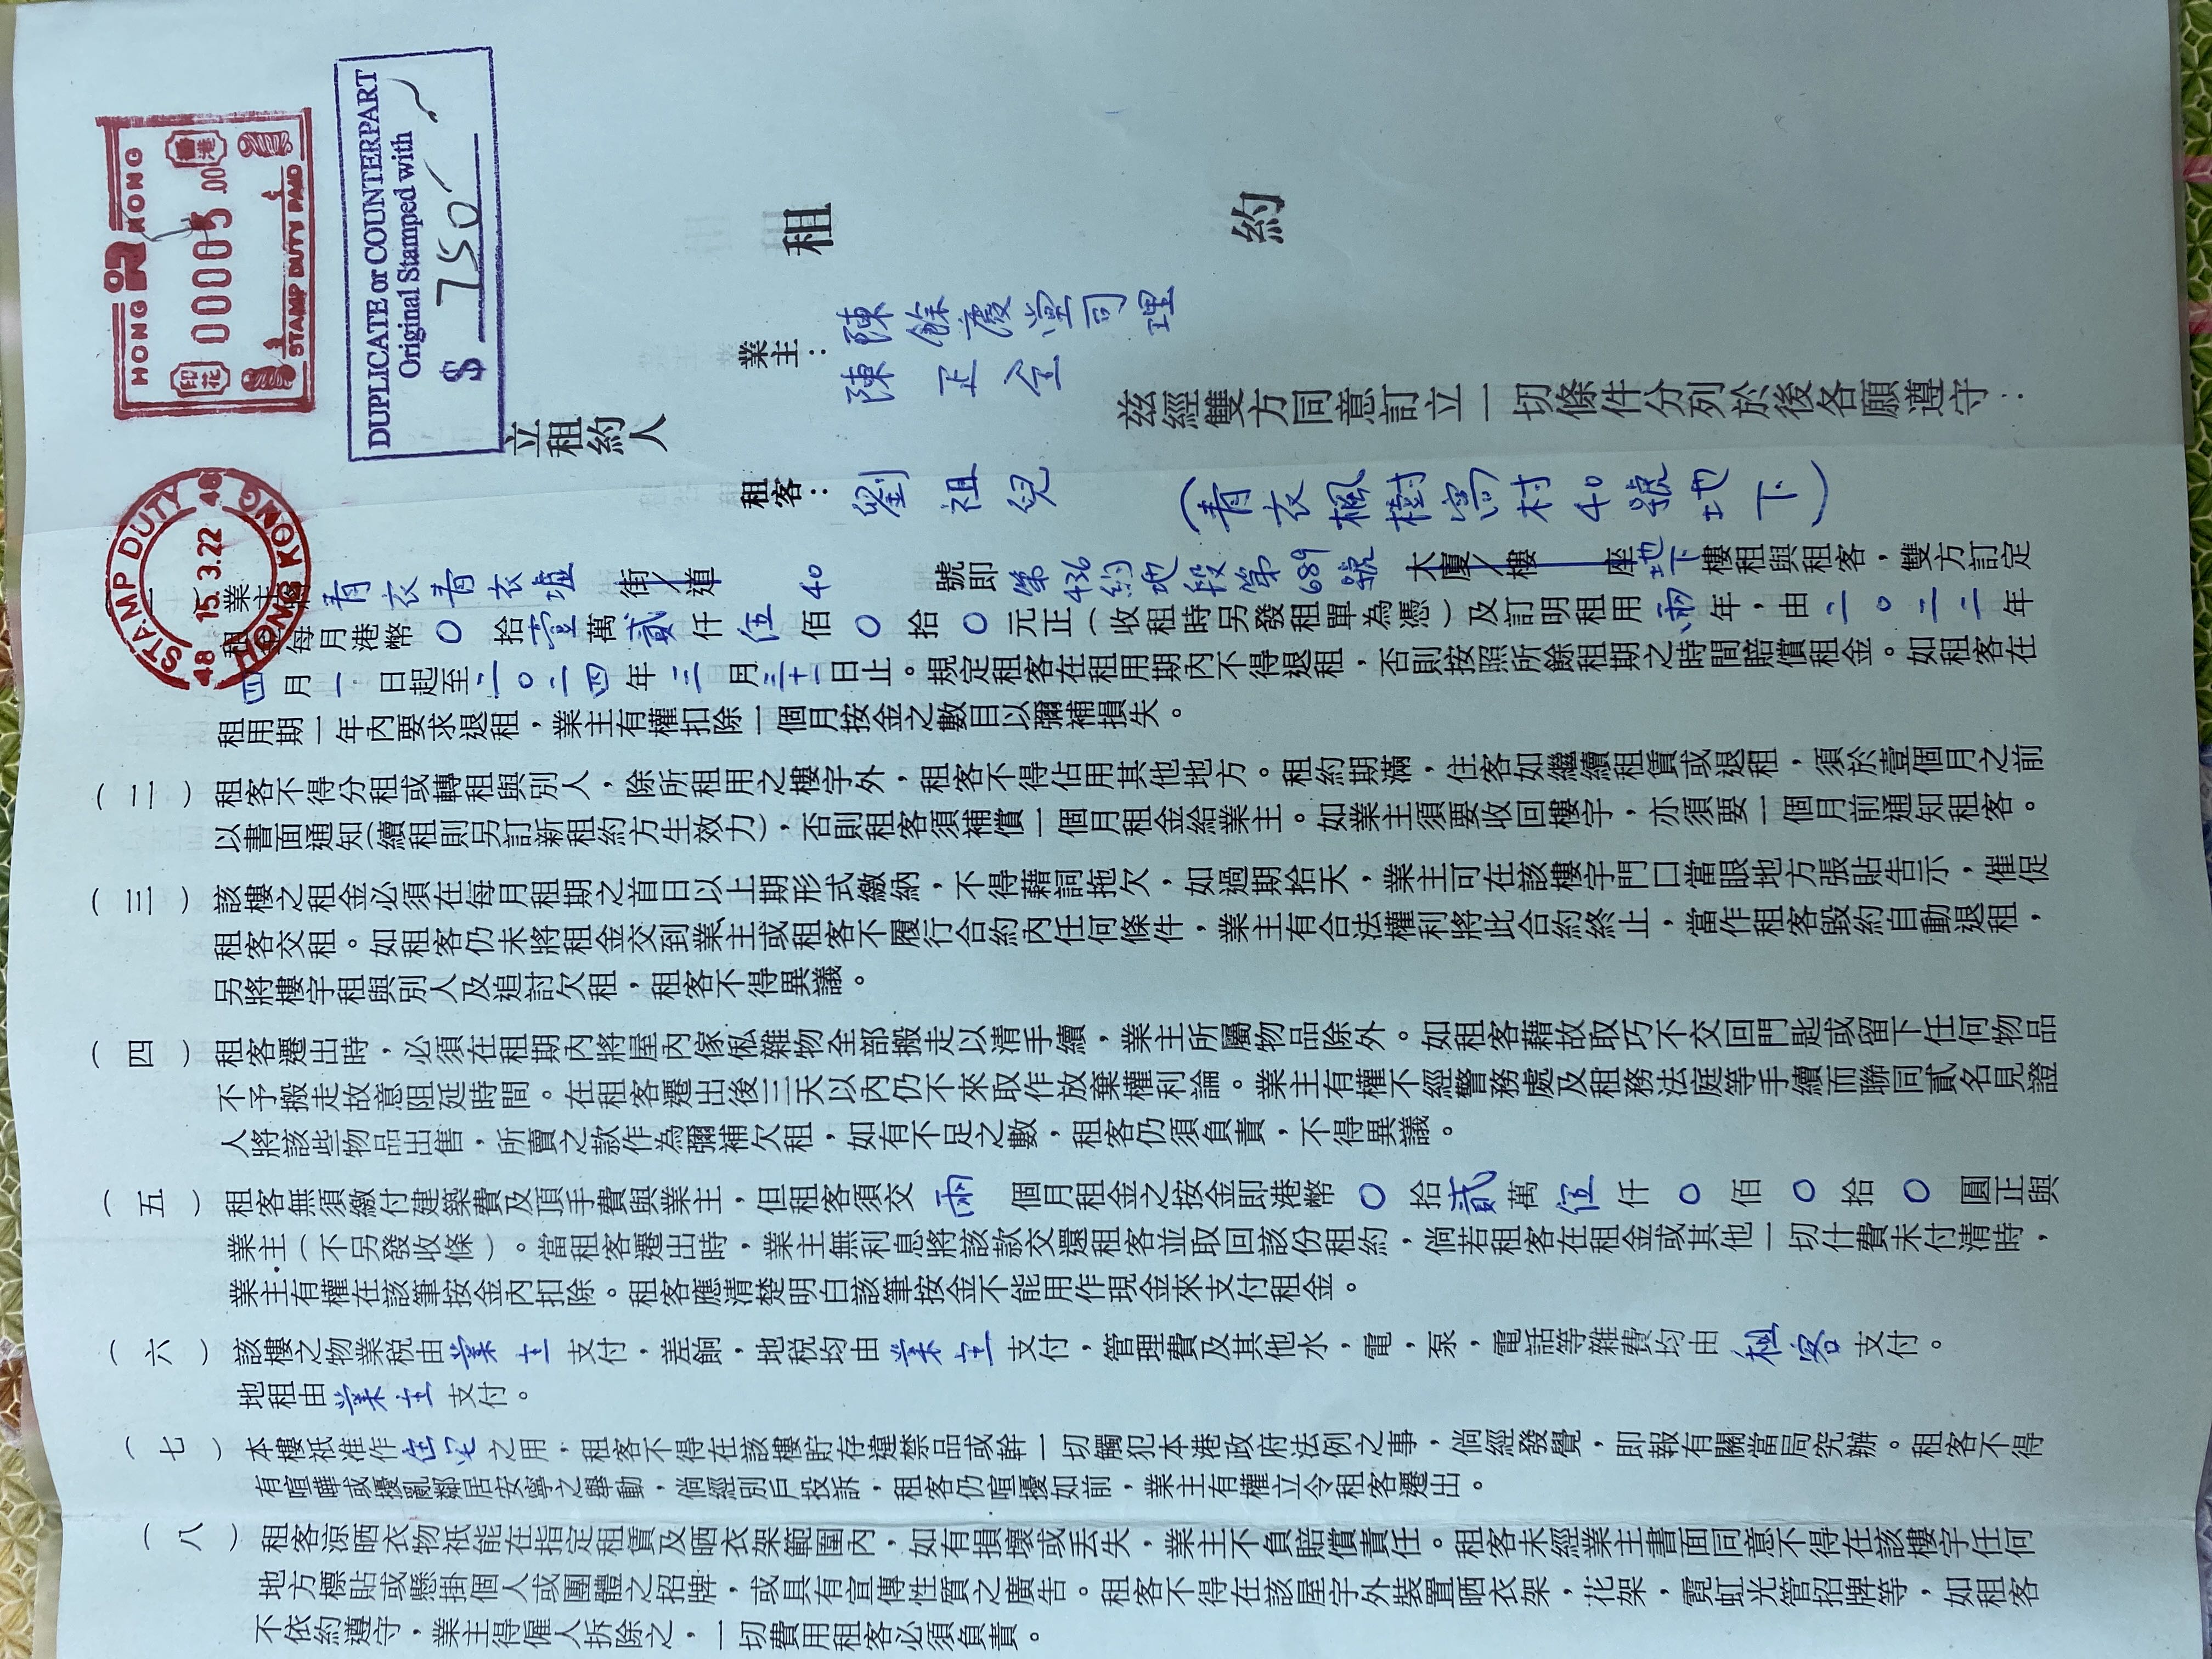 HONG KONG
印花 00005.00 香港
STAMP DUTY PAID
STAMP DUTY 48
15.3.22
48 HONG KONG
DUPLICATE or COUNTERPART
Original Stamped with
$ 750
租 約
立租約人
業主：陳餘慶堂司理
陳正全
租客：劉祖兒
茲經雙方同意訂立一切條件分列於後各願遵守：
（青衣楓樹窩村40號地下）
業主將青衣青衣墟街/道40號即第436約地段第689號大廈/樓 座地下樓租與租客，雙方訂定
租金每月港幣0拾壹萬貳仟伍佰0拾0元正（收租時另發租單為憑）及訂明租用兩年，由二0二二年
四月一日起至二0二四年三月三十一日止。規定租客在租用期內不得退租，否則按照所餘租期之時間賠償租金。如租客在
租用期一年內要求退租，業主有權扣除一個月按金之數目以彌補損失。
（二）租客不得分租或轉租與別人，除所租用之樓宇外，租客不得佔用其他地方。租約期滿，住客如繼續租賃或退租，須於壹個月之前
以書面通知(續租則另訂新租約方生效力)，否則租客須補償一個月租金給業主。如業主須要收回樓宇，亦須要一個月前通知租客。
（三）該樓之租金必須在每月租期之首日以上期形式繳納，不得藉詞拖欠，如過期拾天，業主可在該樓宇門口當眼地方張貼告示，催促
租客交租。如租客仍未將租金交到業主或租客不履行合約內任何條件，業主有合法權利將此合約終止，當作租客毀約自動退租，
另將樓宇租與別人及追討欠租，租客不得異議。
（四）租客遷出時，必須在租期內將屋內傢俬雜物全部搬走以清手續，業主所屬物品除外。如租客藉故取巧不交回門匙或留下任何物品
不予搬走故意阻延時間。在租客遷出後三天以內仍不來取作放棄權利論。業主有權不經警務處及租務法庭等手續而聯同貳名見證
人將該些物品出售，所賣之款作為彌補欠租，如有不足之數，租客仍須負責，不得異議。
（五）租客無須繳付建築費及頂手費與業主，但租客須交兩個月租金之按金即港幣0拾貳萬伍仟0佰0拾0圓正與
業主（不另發收條）。當租客遷出時，業主無利息將該款交還租客並取回該份租約，倘若租客在租金或其他一切什費未付清時，
業主有權在該筆按金內扣除。租客應清楚明白該筆按金不能用作現金來支付租金。
（六）該樓之物業稅由業主支付，差餉，地稅均由業主支付，管理費及其他水，電，泵，電話等雜費均由租客支付。
地租由業主支付。
（七）本樓祇准作住宅之用，租客不得在該樓貯存違禁品或幹一切觸犯本港政府法例之事，倘經發覺，即報有關當局究辦。租客不得
有喧嘩或擾亂鄰居安寧之舉動，倘經別戶投訴，租客仍喧擾如前，業主有權立令租客遷出。
（八）租客涼晒衣物祇能在指定租賃及晒衣架範圍內，如有損壞或丟失，業主不負賠償責任。租客未經業主書面同意不得在該樓宇任何
地方標貼或懸掛個人或團體之招牌，或具有宣傳性質之廣告。租客不得在該屋宇外裝置晒衣架，花架，霓虹光管招牌等，如租客
不依約遵守，業主得僱人拆除之，一切費用租客必須負責。